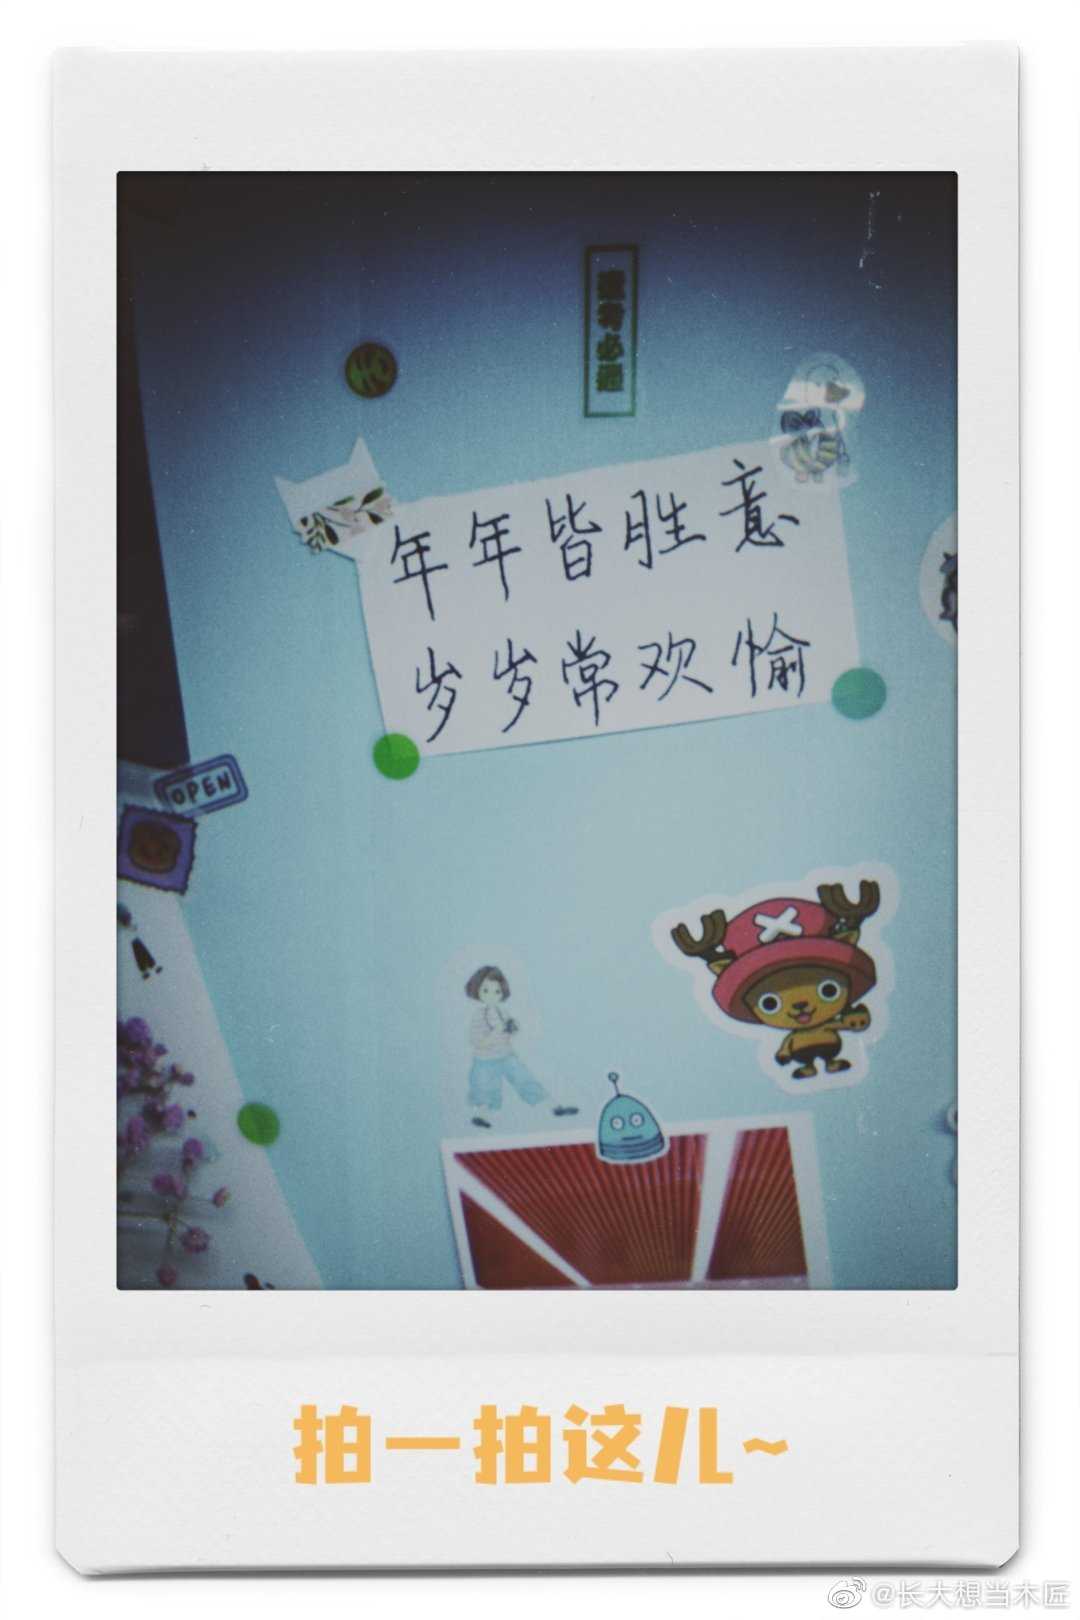 逢考必過
年年皆胜意
岁岁常欢愉
OPEN
拍一拍这儿~
@长大想当木匠